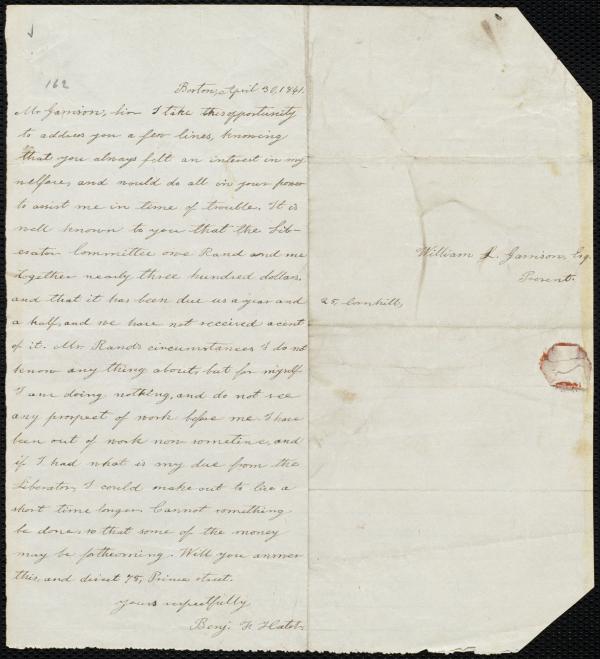 162
Boston, April 30, 1841.
Mr Garrison, Sir I take this opportunity
to address you a few lines, knowing
that you always felt an interest in my
welfare, and would do all in your power
to assist me in time of trouble. It is
well known to you that the Lib-
erator Committee owe Rand and me
together nearly three hundred dollars,
and that it has been due us a year and
a half, and we have not received a cent
of it. Mr. Rand's circumstances I do not
know any thing about, but for myself
I am doing nothing, and do not see
any prospect of work before me. I have
been out of work now sometime, and
if I had what is my due from the
Liberator, I could make out to live a
short time longer. Cannot something
be done, so that some of the money
may be forthcoming. Will you answer
this, and direct 75, Prince street.
yours respectfully
Benj. F.
William L. Garrison, Esq.
Present.
25, Cornhill,